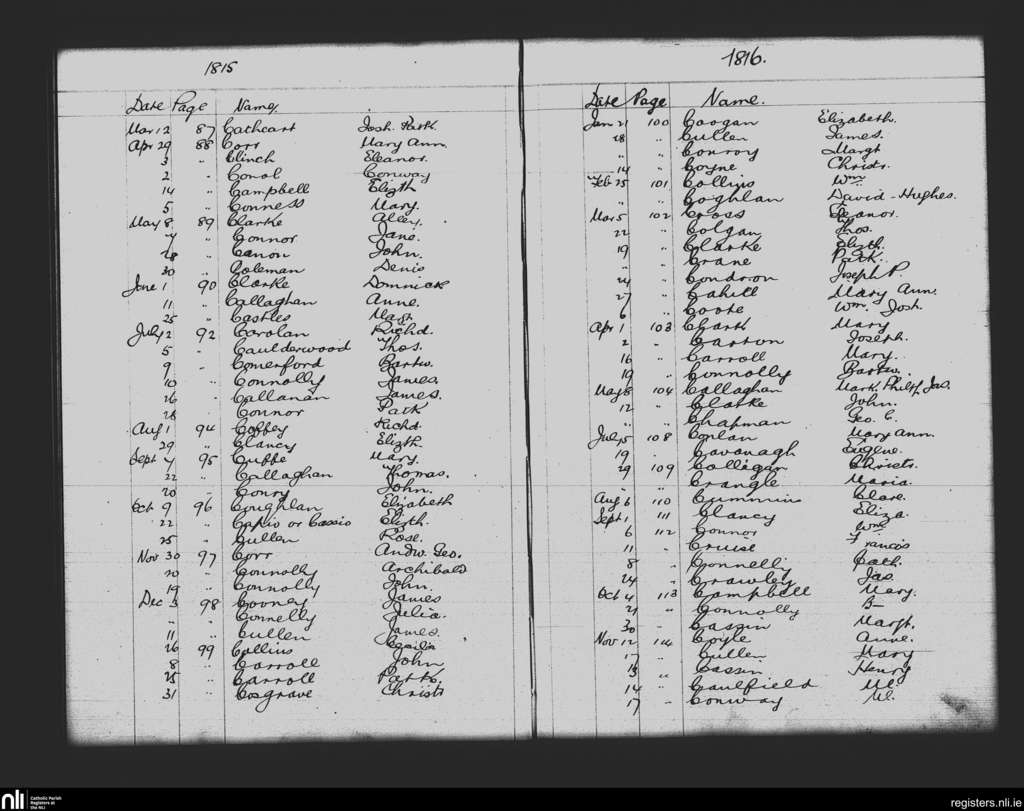 1815
Date Page Name
Mar 12 87 Cathcart Josh. Patk.
Apr 29 88 Corr Mary Ann
3 " Clinch Eleanor.
2 " Conol Conway
14 " Campbell Elizth
5 " Conness Mary.
May 8 89 Clarke
7 " Connor Jane.
28 " Canon John.
30 " Coleman Denis
June 1 90 Clarke Dominick
11 " Callaghan Anne.
25 " Castles Margt
July 2 92 Carolan Richd.
5 " Caulderwood Thos.
9 " Comerford Bartw.
10 " Connolly James.
26 " Callanan James.
28 Connor Patk
Aug 1 94 Coffey Richd
29 " Clancy Elizth
Sept 4 95 Cuffe Mary.
22 " Callaghan Thomas.
20 " Conry John.
Oct 9 96 Coughlan Elizabeth
22 " or Cassio Elizth.
25 " Cullen Rose.
Nov 30 97 Corr Andw. Geo.
20 " Connolly Archibald
19 " Connolly John.
Dec 3 98 Cooney James
" " Connelly Julia.
11 " Cullen James.
26 99 Collins Cecilia
8 " Carroll John
25 " Carroll Patk.
31 " Cosgrave Christr
1816.
Date Page Name.
Jan 21 100 Coogan Elizabeth.
28 " Cullen James.
" " Conroy Margt
14 " Coyne Christr.
Feb 25 101 Collins Wm
" " Coghlan David-Hughes.
Mar 5 102 Cross Eleanor.
22 " Colgan Thos.
19 " Clarke Elizth.
" " Crane Patk.
24 " Condron Joseph P.
27 " Cahill Mary Ann.
6 " Coote Wm. Josh.
Apr 1 103 Clark Mary
2 " Carton Joseph.
16 " Carroll Mary.
19 " Connolly Bartw.
May 8 104 Callaghan Mark Philip Jas.
12 " Clarke John.
" " Chapman Geo. C.
July 5 108 Conlan Mary Ann.
19 " Cavanagh Eugene.
29 109 Colligan Christr.
" " Crangle Maria.
Aug 6 110 Cummins Clare.
Sept 1 111 Clancy Eliza.
6 112 Connor Wm
11 " Cruise Francis
8 " Connelly Cath.
24 " Crawley Jas.
Oct 4 113 Campbell Mary.
21 " Connolly B—
30 " Cassin Margt.
Nov 12 114 Coyle Anne.
17 " Cullen Mary
" Cassin Henry
14 " Caulfield Ml.
17 " Conway Ml.
nli
Catholic Parish
Registers at
the NLI
registers.nli.ie